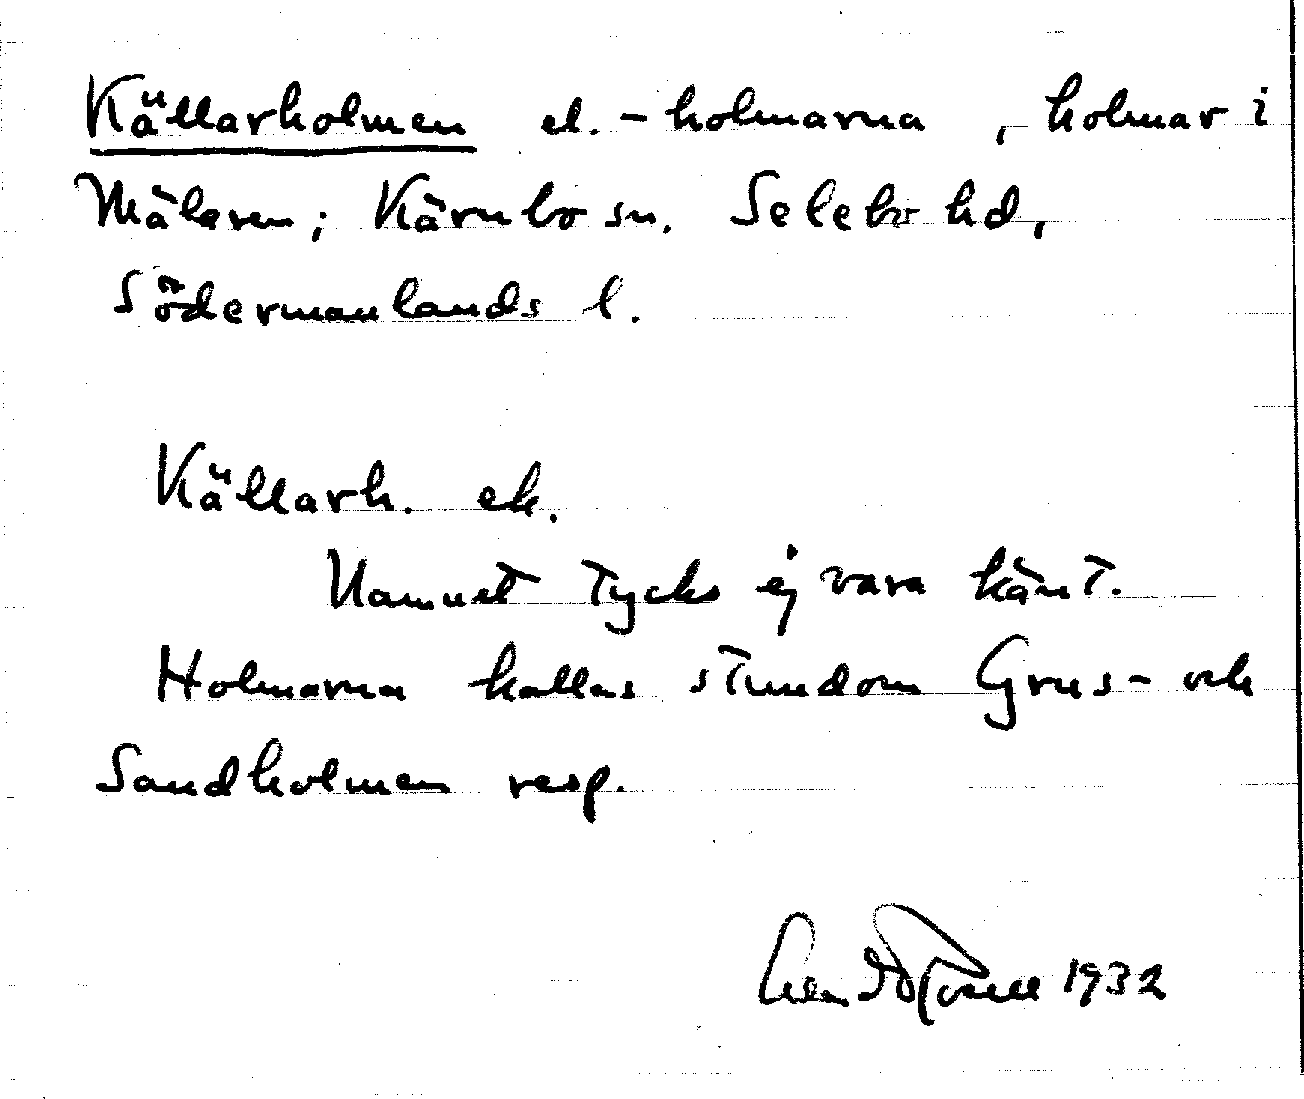 Källarholmen el. -holmarna, holmar i
Mälaren; Kärnbo sn. Selebo hd,
Södermanlands l.
Källarh. ek.
Namnet tycks ej vara känt.
Holmarna kallas stundom Grus- och
Sandholmen resp.
1932